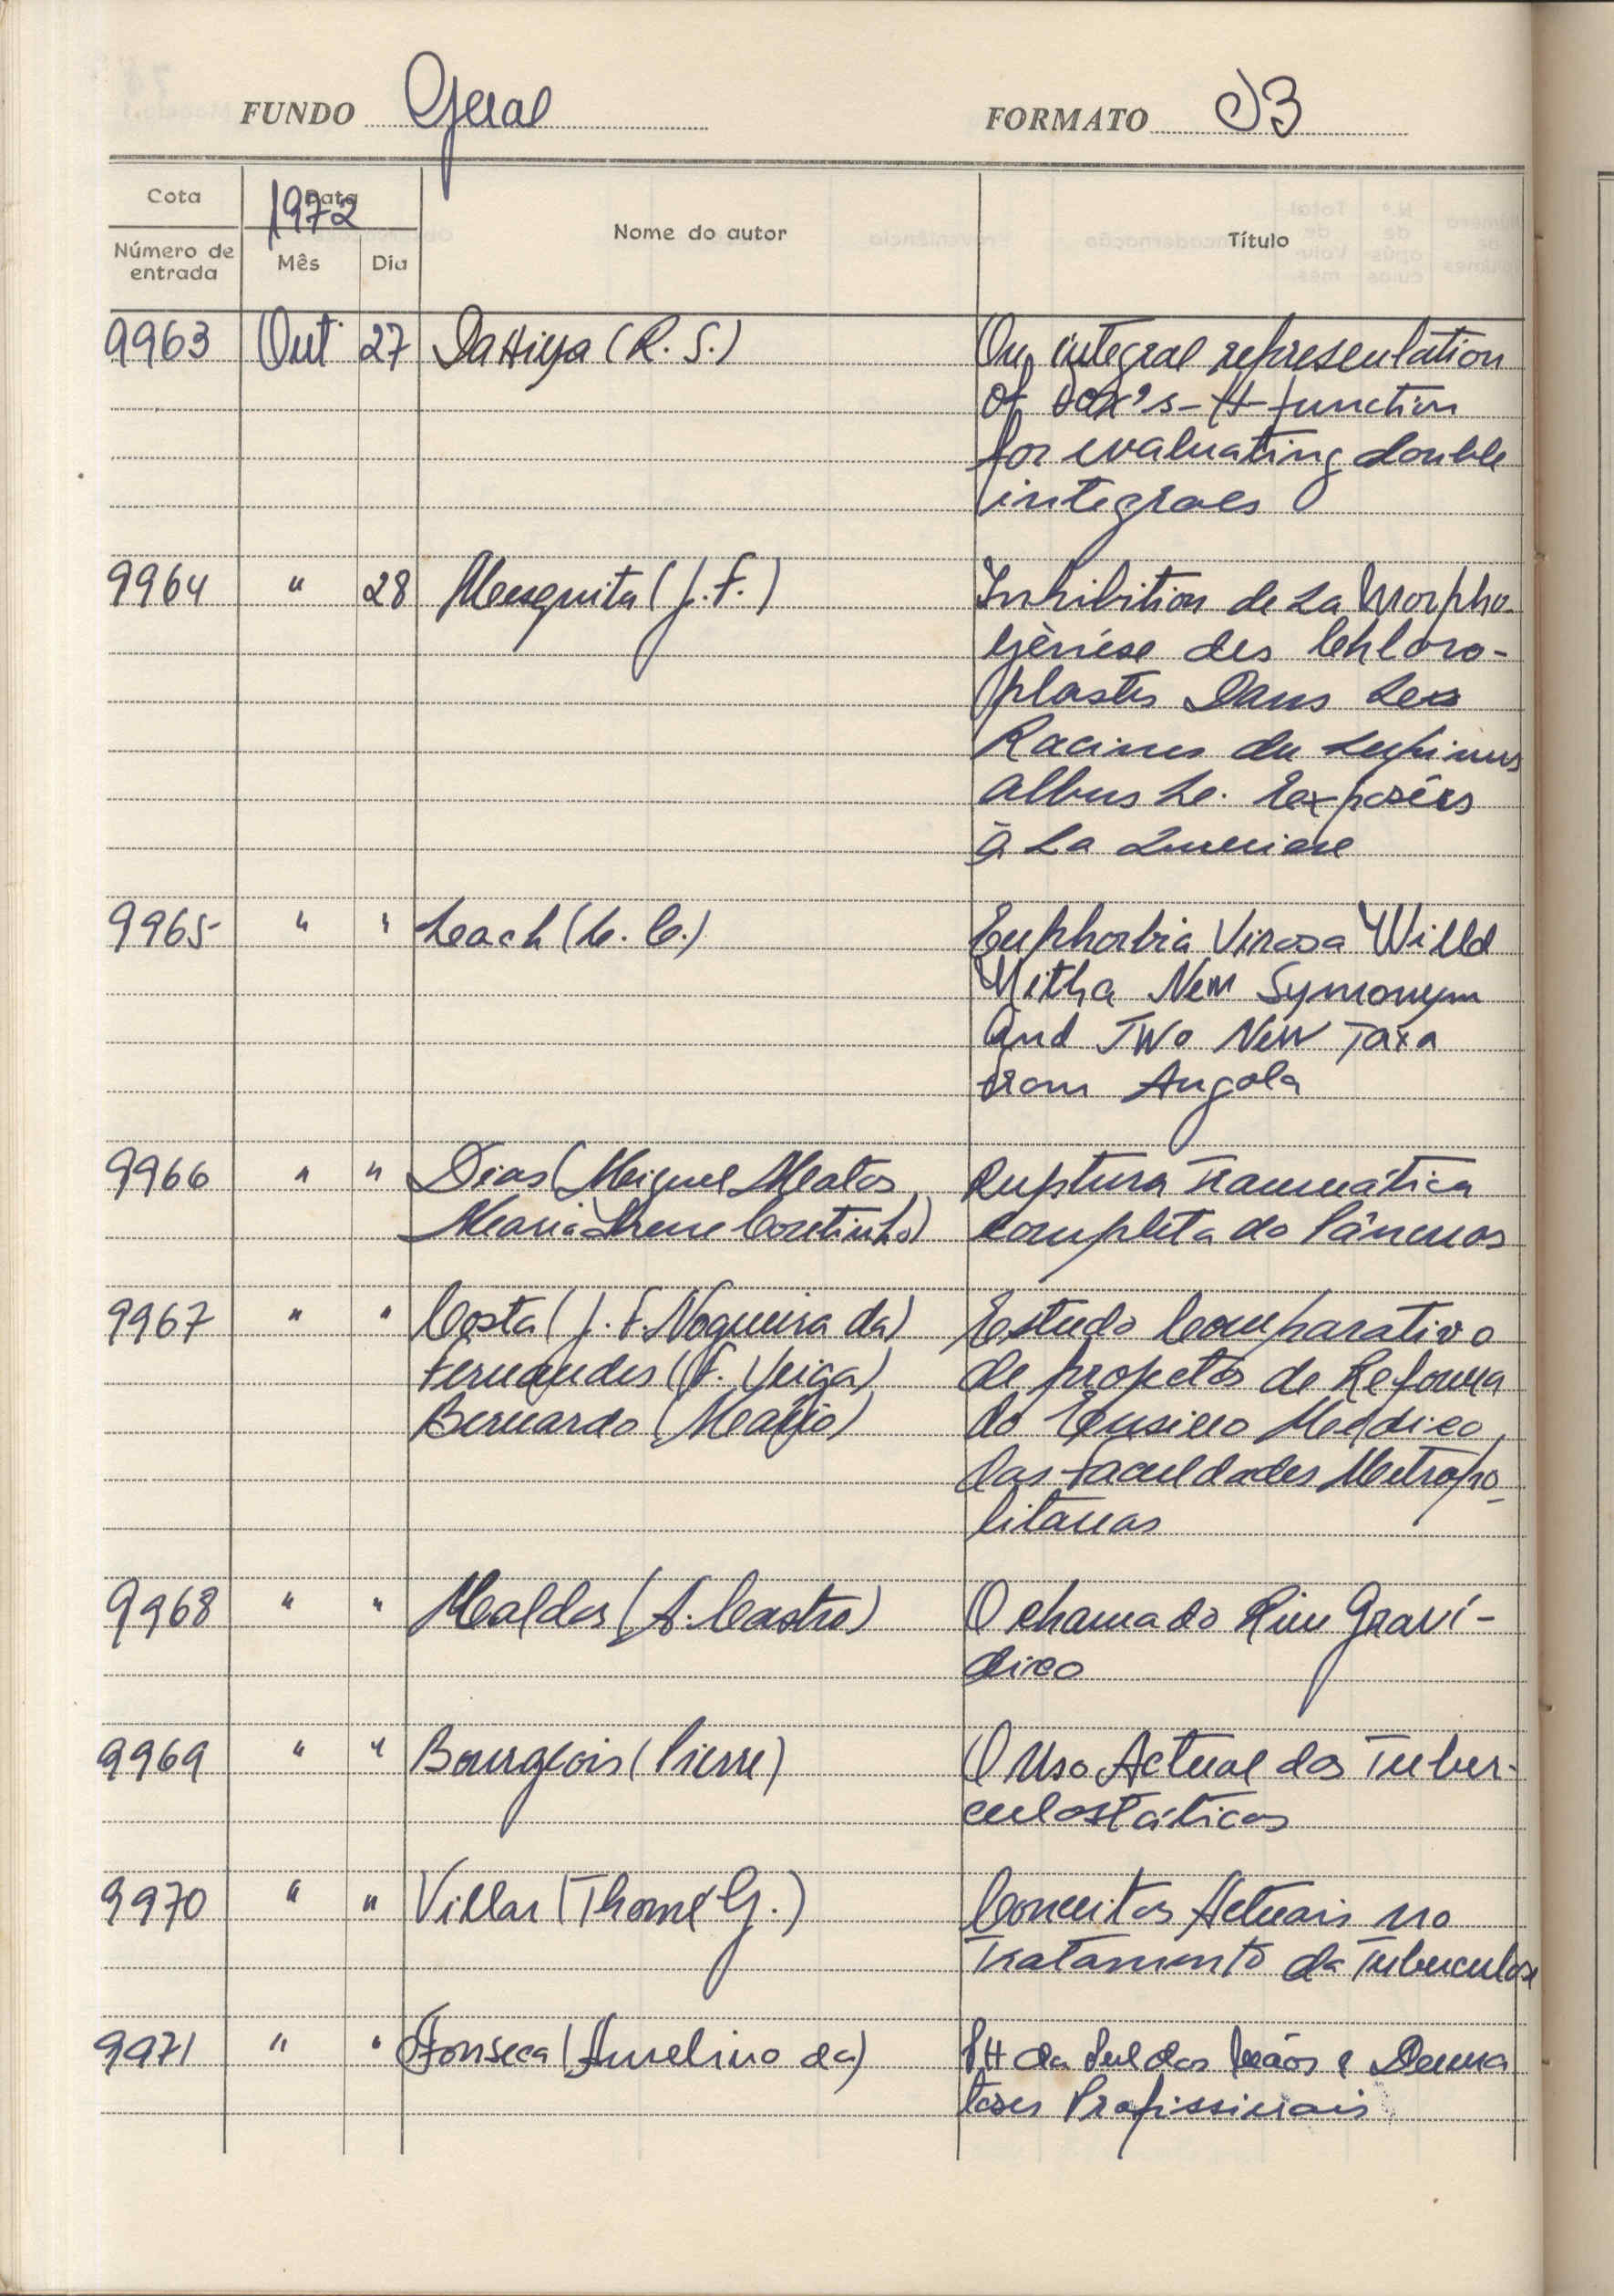 FUNDO Geral FORMATO J3
Cota Data 1972 Nome do autor Título
Número de entrada Mês Dia
9963 Out. 27 Dahiya (R. S.) On integral representation
of Fox's-H-function
for evaluating double
integraes
9964 " 28 Mesquita (J. F.) Inhibition de La Morpho-
génèse des Chloro-
plastes Dans Les
Racines du Lupinus
albus L. Exposées
à La Lumiere
9965 " " Leach (L. C.) Euphorbia Virosa Willd
Witha New Symonym
And Two New Taxa
from Angola
9966 " " Dias (Miguel Matos Ruptura Traumática
Maria Irene Coutinho) Completa do Pâncreas
9967 " " Costa (J. F. Nogueira da) Estudo Comparativo
Fernandes (F. Veiga) de projetos de Reforma
Bernardo (Mário) do Ensino Médico
das Faculdades Metropo-
litanas
9968 " " Caldas (A. Castro) O chamado Rim Graví-
dico
9969 " " Bourgeois (Pierre) O Uso Actual dos Tuber-
culostáticos
9970 " " Villar (Thomé G.) Conceitos Actuais no
Tratamento da Tuberculose
9971 " " Fonseca (Aureliano da) PH da Pele das Mãos e Derma
toses Profissionais